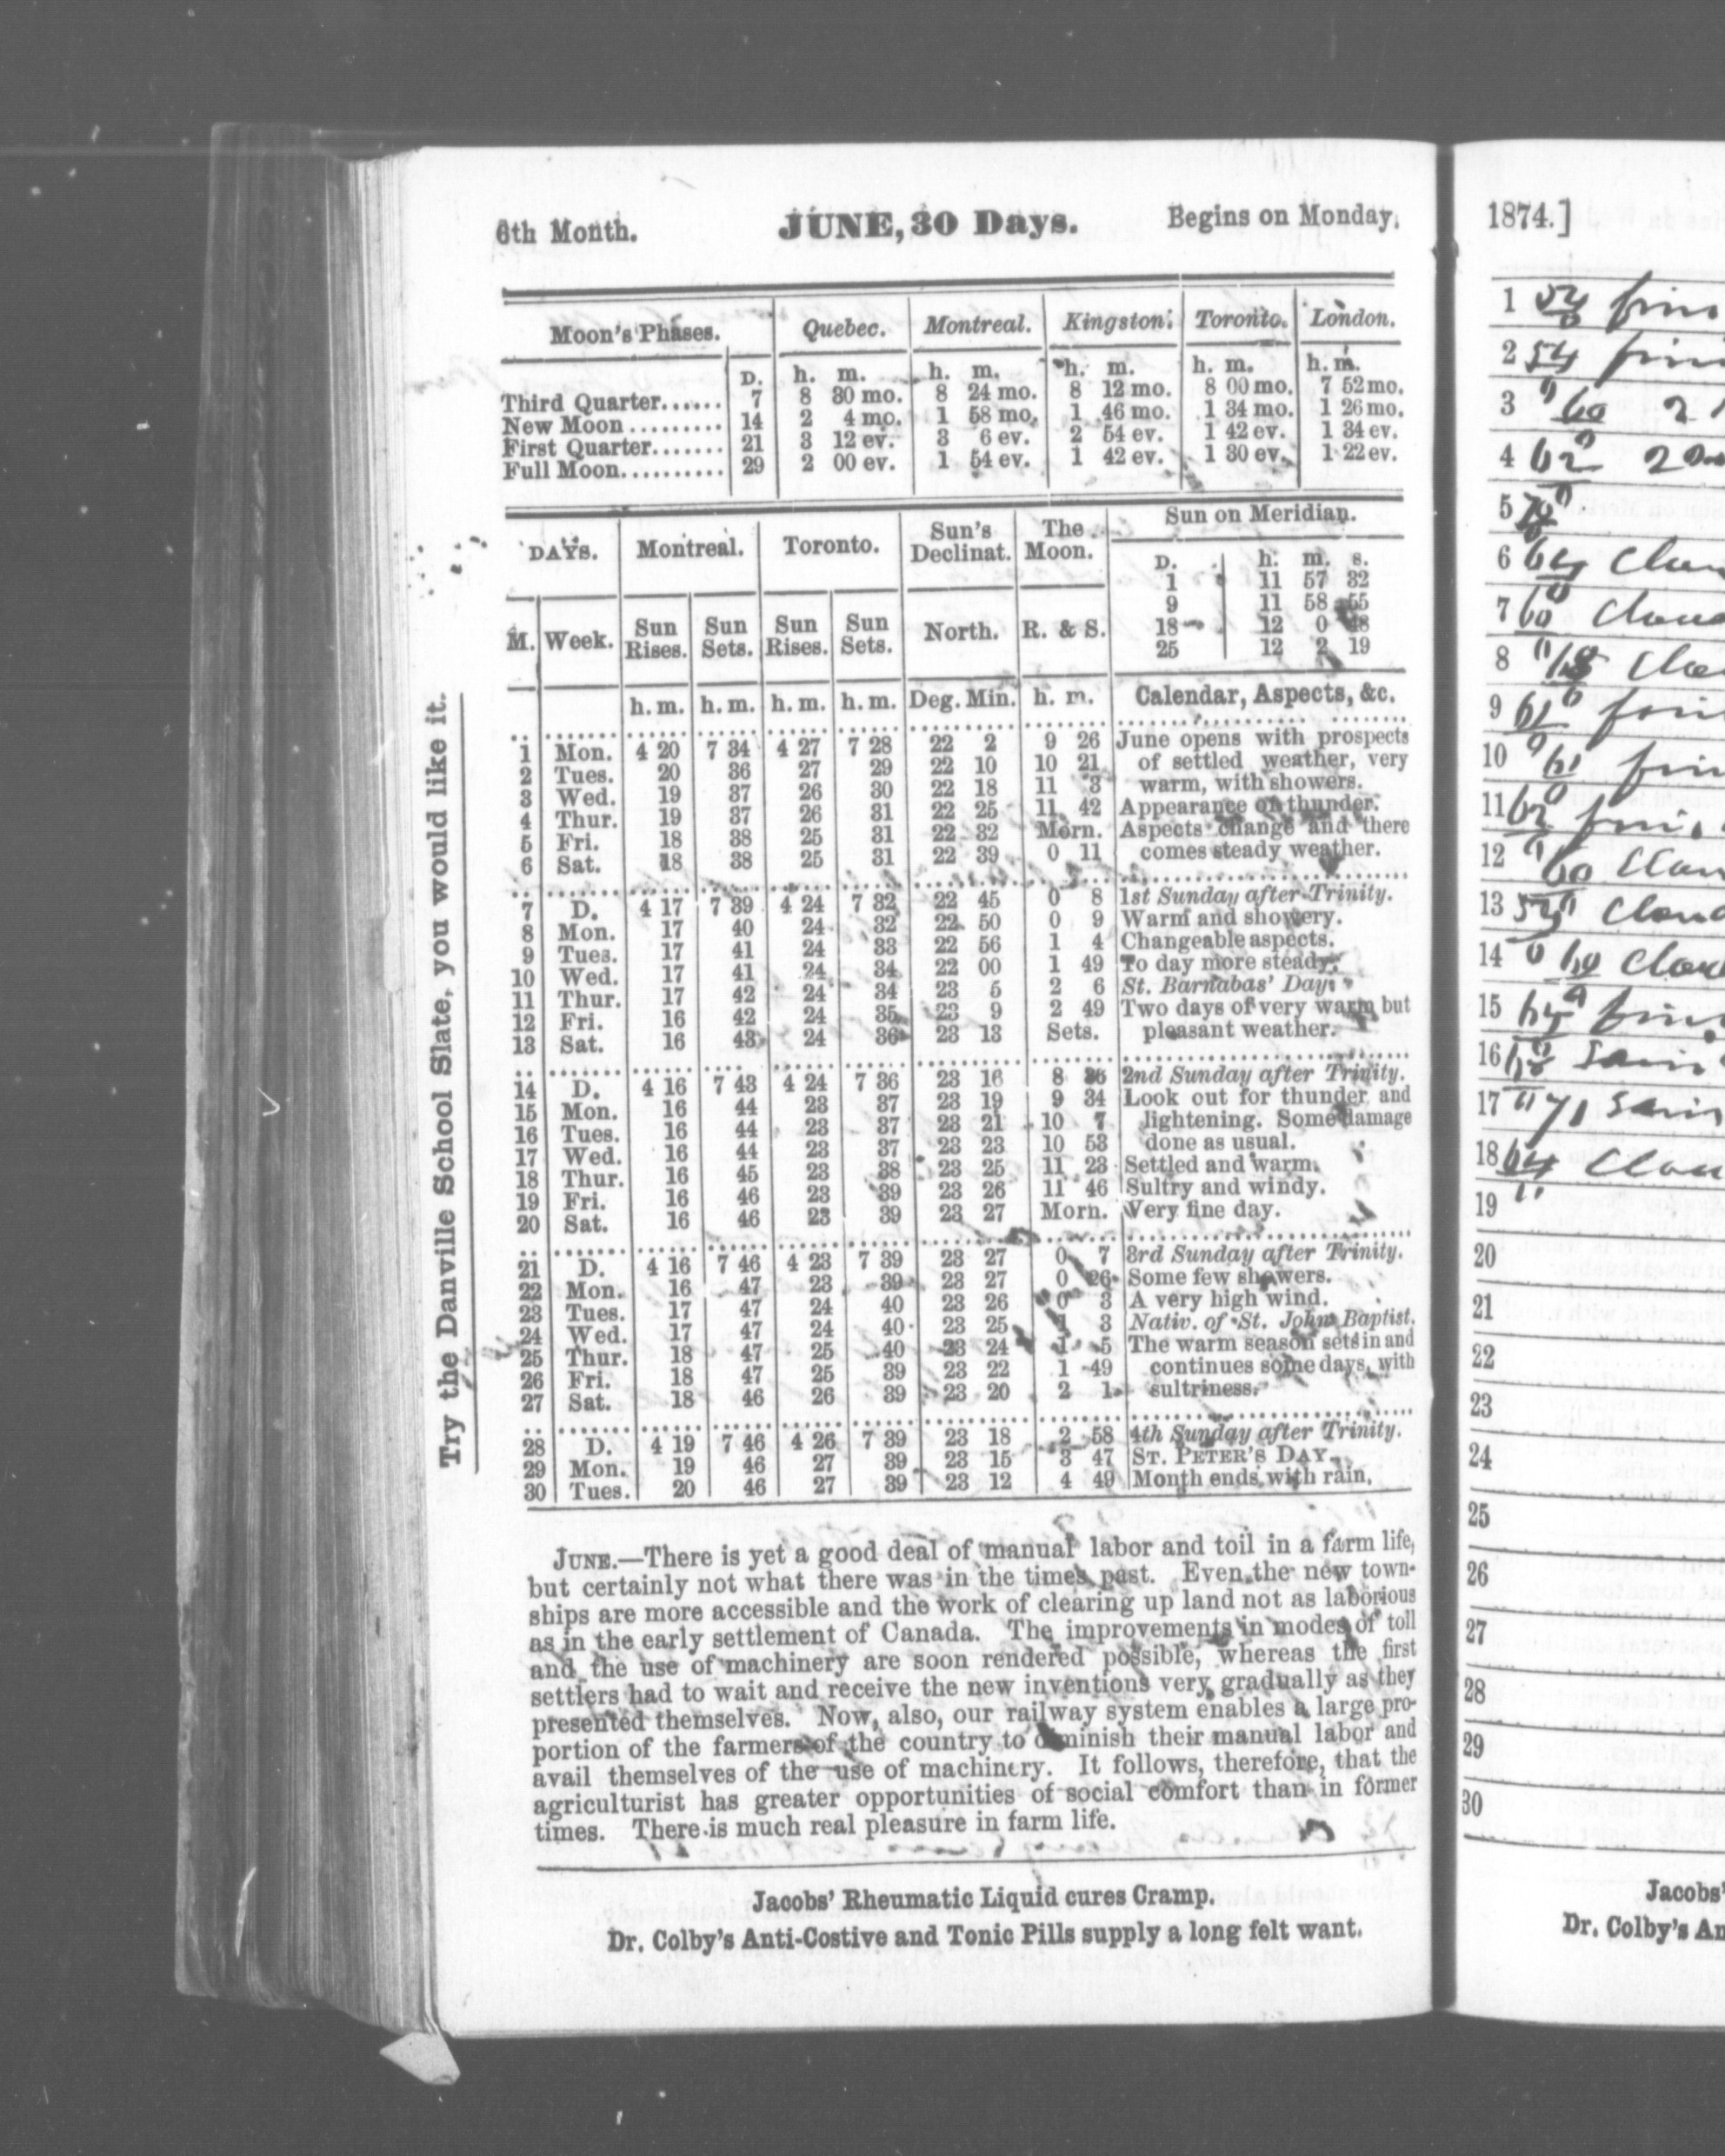 6th Month. JUNE, 30 Days. Begins on Monday.
Moon's Phases. Quebec. Montreal. Kingston. Toronto. London.
D. h. m. h. m. h. m. h. m. h. m.
Third Quarter...... 7 8 30 mo. 8 24 mo. 8 12 mo. 8 00 mo. 7 52 mo.
New Moon ......... 14 2 4 mo. 1 58 mo. 1 46 mo. 1 34 mo. 1 26 mo.
First Quarter....... 21 3 12 ev. 3 6 ev. 2 54 ev. 1 42 ev. 1 34 ev.
Full Moon.......... 29 2 00 ev. 1 54 ev. 1 42 ev. 1 30 ev. 1 22 ev.
DAYS. Montreal. Toronto. Sun's Declinat. The Moon. Sun on Meridian.
D. h. m. s.
1 11 57 32
9 11 58 55
18 12 0
25 12 2 19
M. Week. Sun Rises. Sun Sets. Sun Rises. Sun Sets. North. R. & S.
h. m. h. m. h. m. h. m. Deg. Min. h. m. Calendar, Aspects, &c.
1 Mon. 4 20 7 34 4 27 7 28 22 2 9 26 June opens with prospects
2 Tues. 20 36 27 29 22 10 10 21 of settled weather, very
3 Wed. 19 37 26 30 22 18 11 3 warm, with showers.
4 Thur. 19 37 26 31 22 25 11 42 Appearance of thunder.
5 Fri. 18 38 25 31 22 32 Morn. Aspects change and there
6 Sat. 18 38 25 31 22 39 0 11 comes steady weather.
7 D. 4 17 7 39 4 24 7 32 22 45 0 8 1st Sunday after Trinity.
8 Mon. 17 40 24 32 22 50 0 9 Warm and showery.
9 Tues. 17 41 24 33 22 56 1 4 Changeable aspects.
10 Wed. 17 41 24 34 22 00 1 49 To day more steady.
11 Thur. 17 42 24 34 23 5 2 6 St. Barnabas' Day.
12 Fri. 16 42 24 35 23 9 2 49 Two days of very warm but
13 Sat. 16 43 24 36 23 13 Sets. pleasant weather.
14 D. 4 16 7 43 4 24 7 36 23 16 8 2nd Sunday after Trinity.
15 Mon. 16 44 23 37 23 19 9 34 Look out for thunder and
16 Tues. 16 44 23 37 23 21 10 7 lightening. Some damage
17 Wed. 16 44 23 37 23 23 10 53 done as usual.
18 Thur. 16 45 23 38 23 25 11 23 Settled and warm.
19 Fri. 16 46 23 39 23 26 11 46 Sultry and windy.
20 Sat. 16 46 23 39 23 27 Morn. Very fine day.
21 D. 4 16 7 46 4 23 7 39 23 27 0 7 3rd Sunday after Trinity.
22 Mon. 16 47 23 39 23 27 0 26 Some few showers.
23 Tues. 17 47 24 40 23 26 0 3 A very high wind.
24 Wed. 17 47 24 40 23 25 1 3 Nativ. of St. John Baptist.
25 Thur. 18 47 25 40 23 24 1 5 The warm season sets in and
26 Fri. 18 47 25 39 23 22 1 49 continues some days, with
27 Sat. 18 46 26 39 23 20 2 1 sultriness.
28 D. 4 19 7 46 4 26 7 39 23 18 2 58 4th Sunday after Trinity.
29 Mon. 19 46 27 39 23 15 3 47 ST. PETER'S DAY.
30 Tues. 20 46 27 39 23 12 4 49 Month ends with rain.
JUNE.—There is yet a good deal of manual labor and toil in a farm life,
but certainly not what there was in the times past. Even the new town-
ships are more accessible and the work of clearing up land not as laborious
as in the early settlement of Canada. The improvements in modes of toll
and the use of machinery are soon rendered possible, whereas the first
settlers had to wait and receive the new inventions very gradually as they
presented themselves. Now, also, our railway system enables a large pro-
portion of the farmers of the country to diminish their manual labor and
avail themselves of the use of machinery. It follows, therefore, that the
agriculturist has greater opportunities of social comfort than in former
times. There is much real pleasure in farm life.
Jacobs' Rheumatic Liquid cures Cramp.
Dr. Colby's Anti-Costive and Tonic Pills supply a long felt want.
Try the Danville School Slate, you would like it.
1874.]
1
2 54
3 60 2
4 62 2
5
6 64
7 60
8
9 61
10 61
11 62
12 60
13
14 60
15
16
17 71
18 64
19
20
21
22
23
24
25
26
27
28
29
30
Jacobs'
Dr. Colby's An